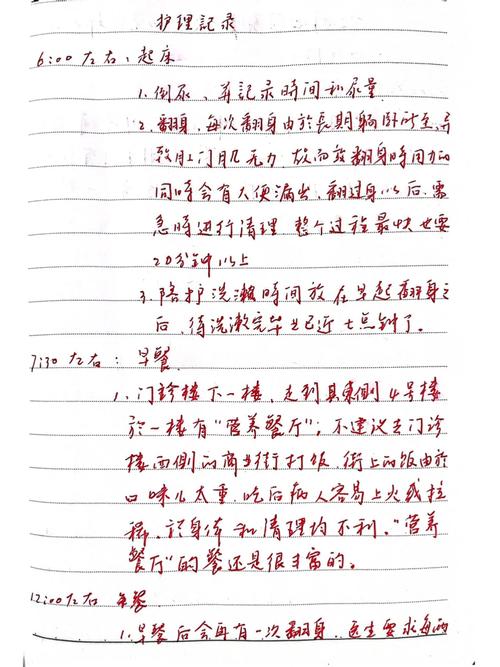 护理記录
6:00左右：起床
1.倒尿、并記录時间和尿量
2.翻身，每次翻身由於長期躺卧所至，导
致肛门肌无力，故而致翻身時用力的
同時会有大便漏出，翻过身以后，需
急時进行清理，整个过程最快也要
20分钟以上
3.陪护洗漱時间放在早起翻身之
后，待洗漱完毕也已近七点钟了。
7:30左右：早餐
1、门診楼下一楼，走到其東側4号楼
於一楼有“营养餐厅”；不建议去门诊
楼西側的商业街打饭，街上的饭由於
口味儿太重，吃后病人容易上火或拉
稀，於身体和清理均不利。“营养
餐厅”的餐还是很丰富的。
12:00左右 午餐
1.早餐后会再有一次翻身，医生要求每两